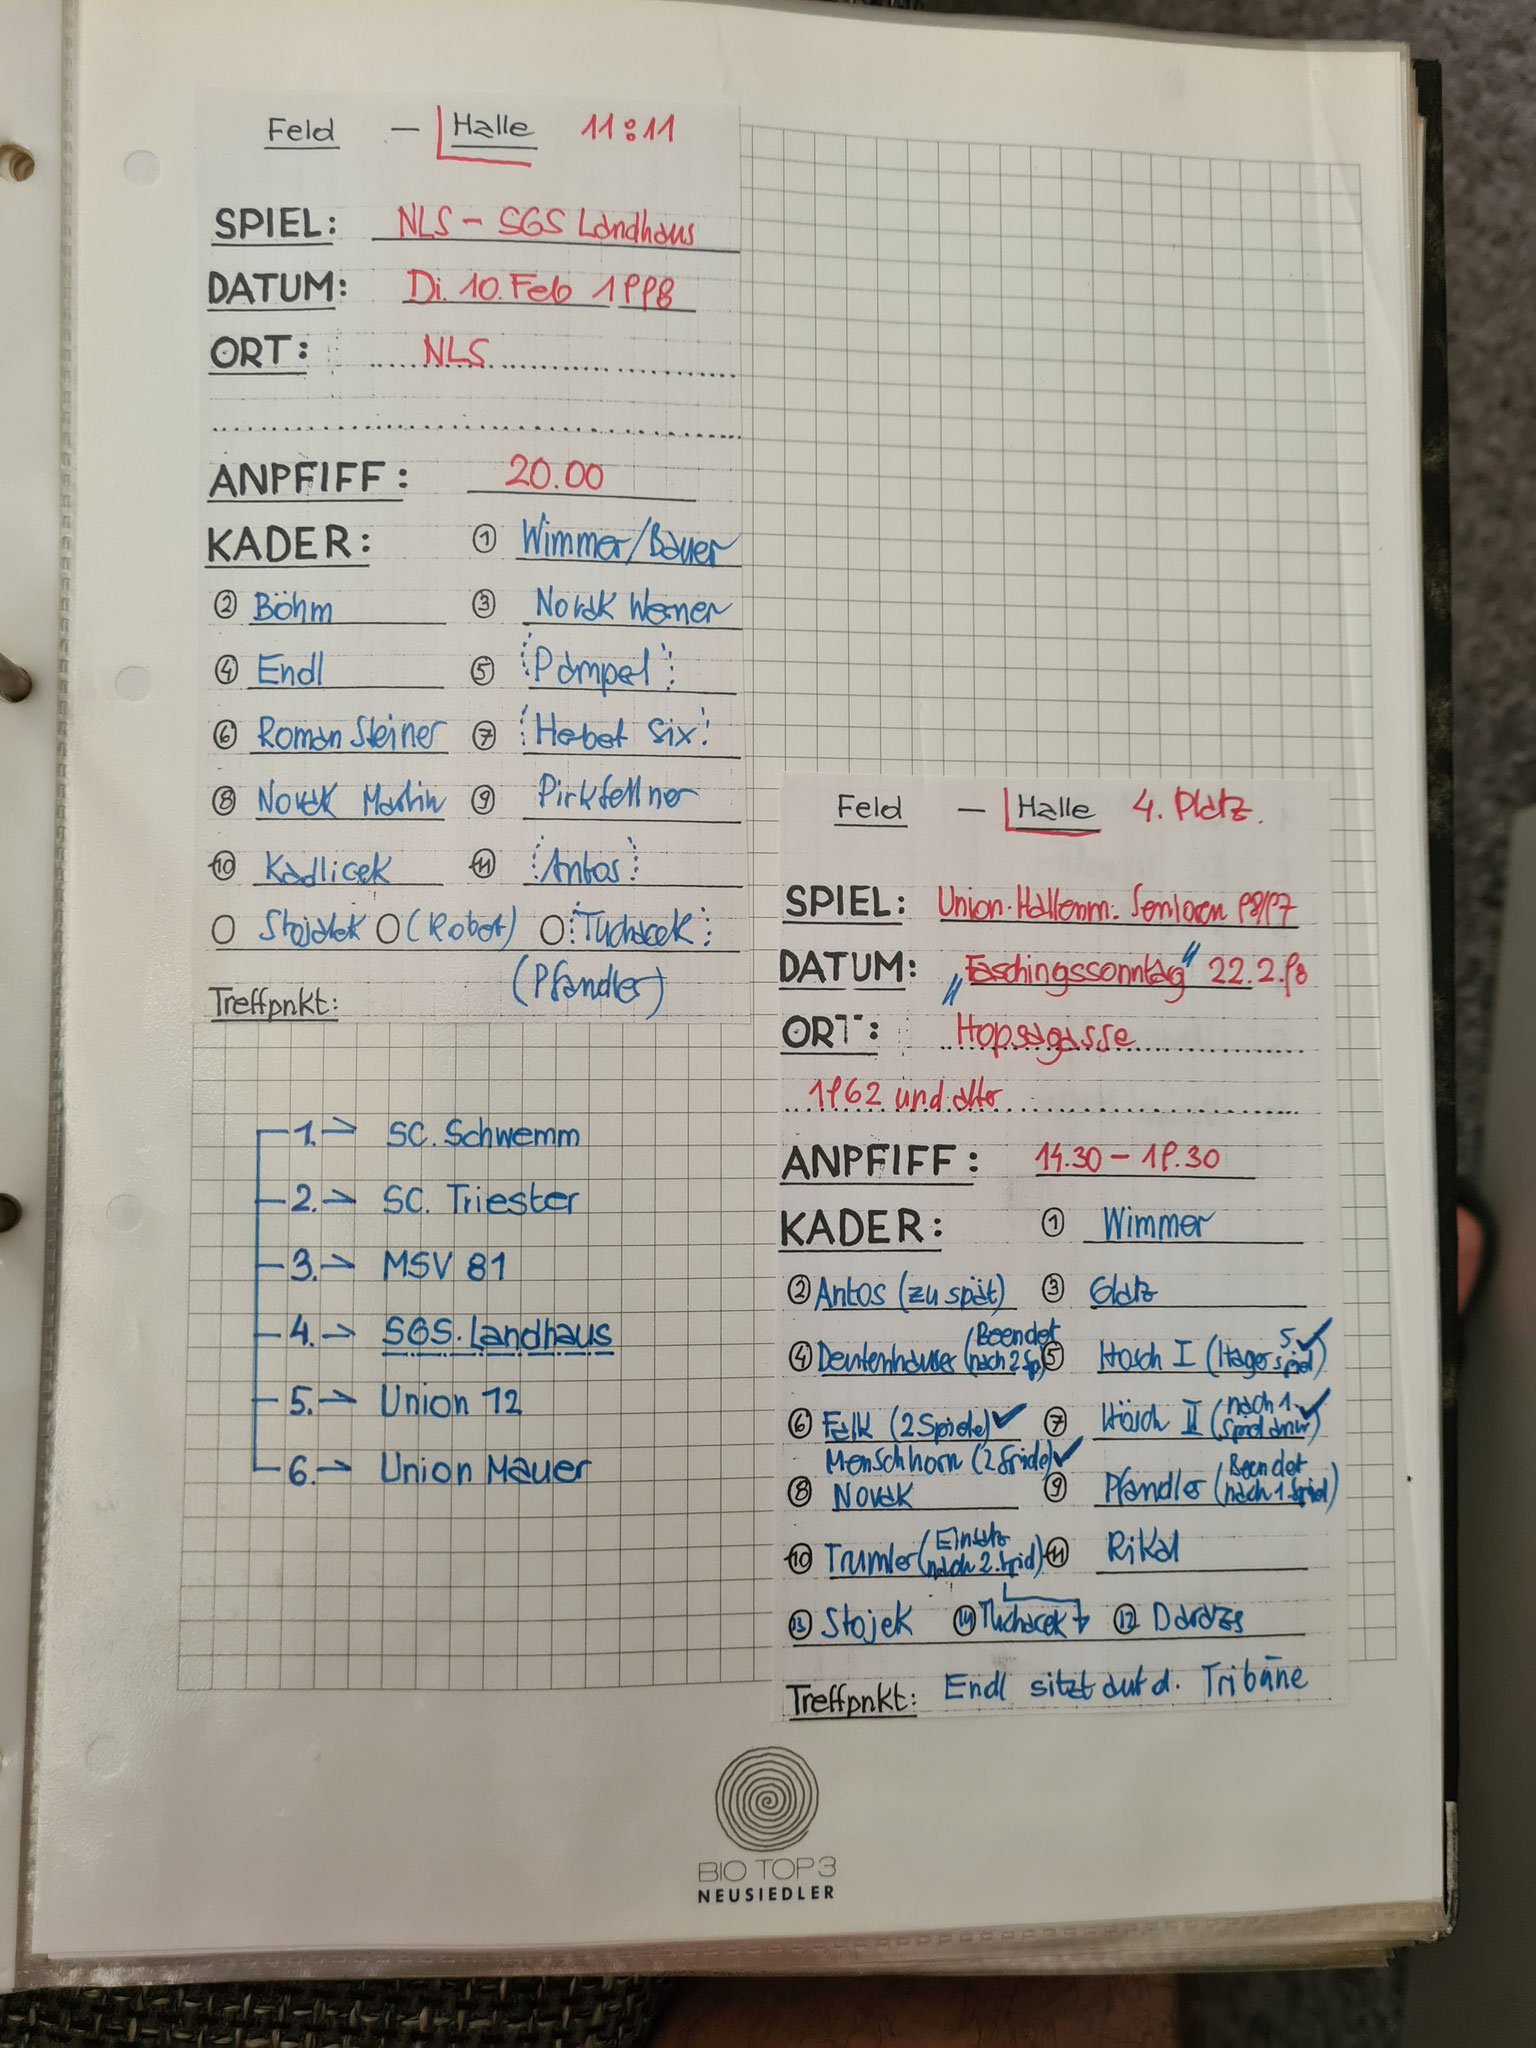 Feld - Halle 11:11
SPIEL: NLS - SGS Landhaus
DATUM: Di. 10. Feb 1998
ORT: NLS
ANPFIFF: 20.00
KADER: 1 Wimmer/Bauer
2 Böhm 3 Novak Werner
4 Endl 5 Pampel
6 Roman Steiner 7 Hebet Six
8 Novak Martin 9 Pirkfellner
10 Kadlicek 11 Antos
Stojalek (Robert) Tuchacek
(Pfandler)
Treffpnkt:
1. → SC. Schwemm
2. → SC. Triester
3. → MSV 81
4. → SGS. Landhaus
5. → Union 12
6. → Union Mauer
Feld - Halle 4. Platz.
SPIEL: Union-Hallenm. Senioren 98/97
DATUM: „Faschingssonntag" 22.2.98
ORT: Hopsagasse
1962 und älter
ANPFIFF: 14.30 - 19.30
KADER: 1 Wimmer
2 Antos (zu spät) 3 Glatz
4 Deutenhauser (Beendet nach 2 Sp) 5 Hösch I (Hager 5. spiel) ✓
6 Falk (2 Spiele) ✓ 7 Hösch II (nach 1. Spiel) ✓
Menschhorn (2 Spiele) ✓
8 Novak 9 Pfandler (Beendet nach 1. Spiel)
10 Trumler (Einsatz nach 2. Spiel) 11 Rikal
13 Stojek 14 Tuchacek 12 Darazs
Treffpnkt: Endl sitzt auf d. Tribüne
BIO TOP 3
NEUSIEDLER